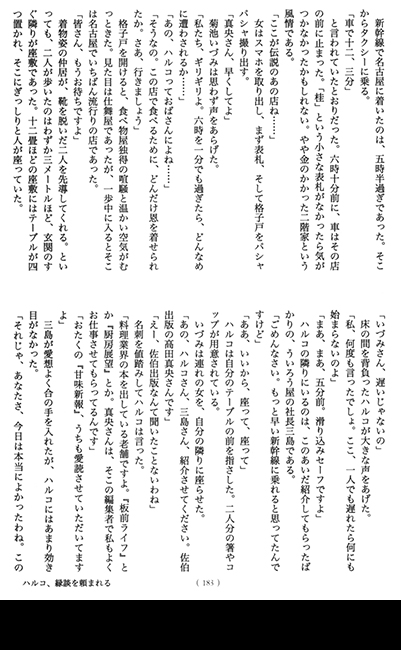 新幹線で名古屋に着いたのは、五時半過ぎであった。そこ
からタクシーに乗る。
「車で十二、三分」
と言われていたとおりだった。六時十分前に、車はその店
の前に止まった。「桂」という小さな表札がなかったら気が
つかなかったかもしれない。やや金のかかった二階家という
風情である。
「ここが伝説のあの店ね……」
女はスマホを取り出し、まず表札、そして格子戸をパシャ
パシャ撮り出す。
「真央さん、早くしてよ」
菊池いづみは思わず声をあげた。
「私たち、ギリギリよ。六時を一分でも過ぎたら、どんなめ
に遭わされるか……」
「あの、ハルコっておばさんによね……」
「そうなの。この店で食べるために、どんだけ恩を着せられ
たか。さあ、行きましょう」
格子戸を開けると、食べ物屋独得の喧騒と温かい空気がむ
っときた。見た目は仕舞屋であったが、一歩中に入るとそこ
は名古屋でいちばん流行りの店であった。
「皆さん、もうお待ちですよ」
着物姿の仲居が、靴を脱いだ二人を先導してくれる。とい
っても、二人が歩いたのはわずか三メートルほど、玄関のす
ぐ隣りが座敷であった。十二畳ほどの座敷にはテーブルが四
つ置かれ、そこにぎっしりと人が座っていた。
「いづみさん、遅いじゃないの」
床の間を背負ったハルコが大きな声をあげた。
「私、何度も言ったでしょ。ここ、一人でも遅れたら何にも
始まらないのよ」
「まあ、まあ、五分前。滑り込みセーフですよ」
ハルコの隣りにいるのは、このあいだ紹介してもらったば
かりの、ういろう屋の社長三島である。
「ごめんなさい。もっと早い新幹線に乗れると思ってたんで
すけど」
「ああ、いいから、座って、座って」
ハルコは自分のテーブルの前を指さした。二人分の箸やコ
ップが用意されている。
いづみは連れの女を、自分の隣りに座らせた。
「あの、ハルコさん、三島さん、紹介させてください。佐伯
出版の高田真央さんです」
「えー、佐伯出版なんて聞いたことないわね」
名刺を値踏みしてハルコは言った。
「料理業界の本を出している老舗ですよ。『板前ライフ』と
か『厨房展望』とか。真央さんは、そこの編集者で私もよく
お仕事させてもらってるんです」
「おたくの『甘味新報』、うちも愛読させていただいてます
よ」
三島が愛想よく合の手を入れたが、ハルコにはあまり効き
目がなかった。
「それじゃ、あなたさ、今日は本当によかったわね。この
(183)
ハルコ、縁談を頼まれる